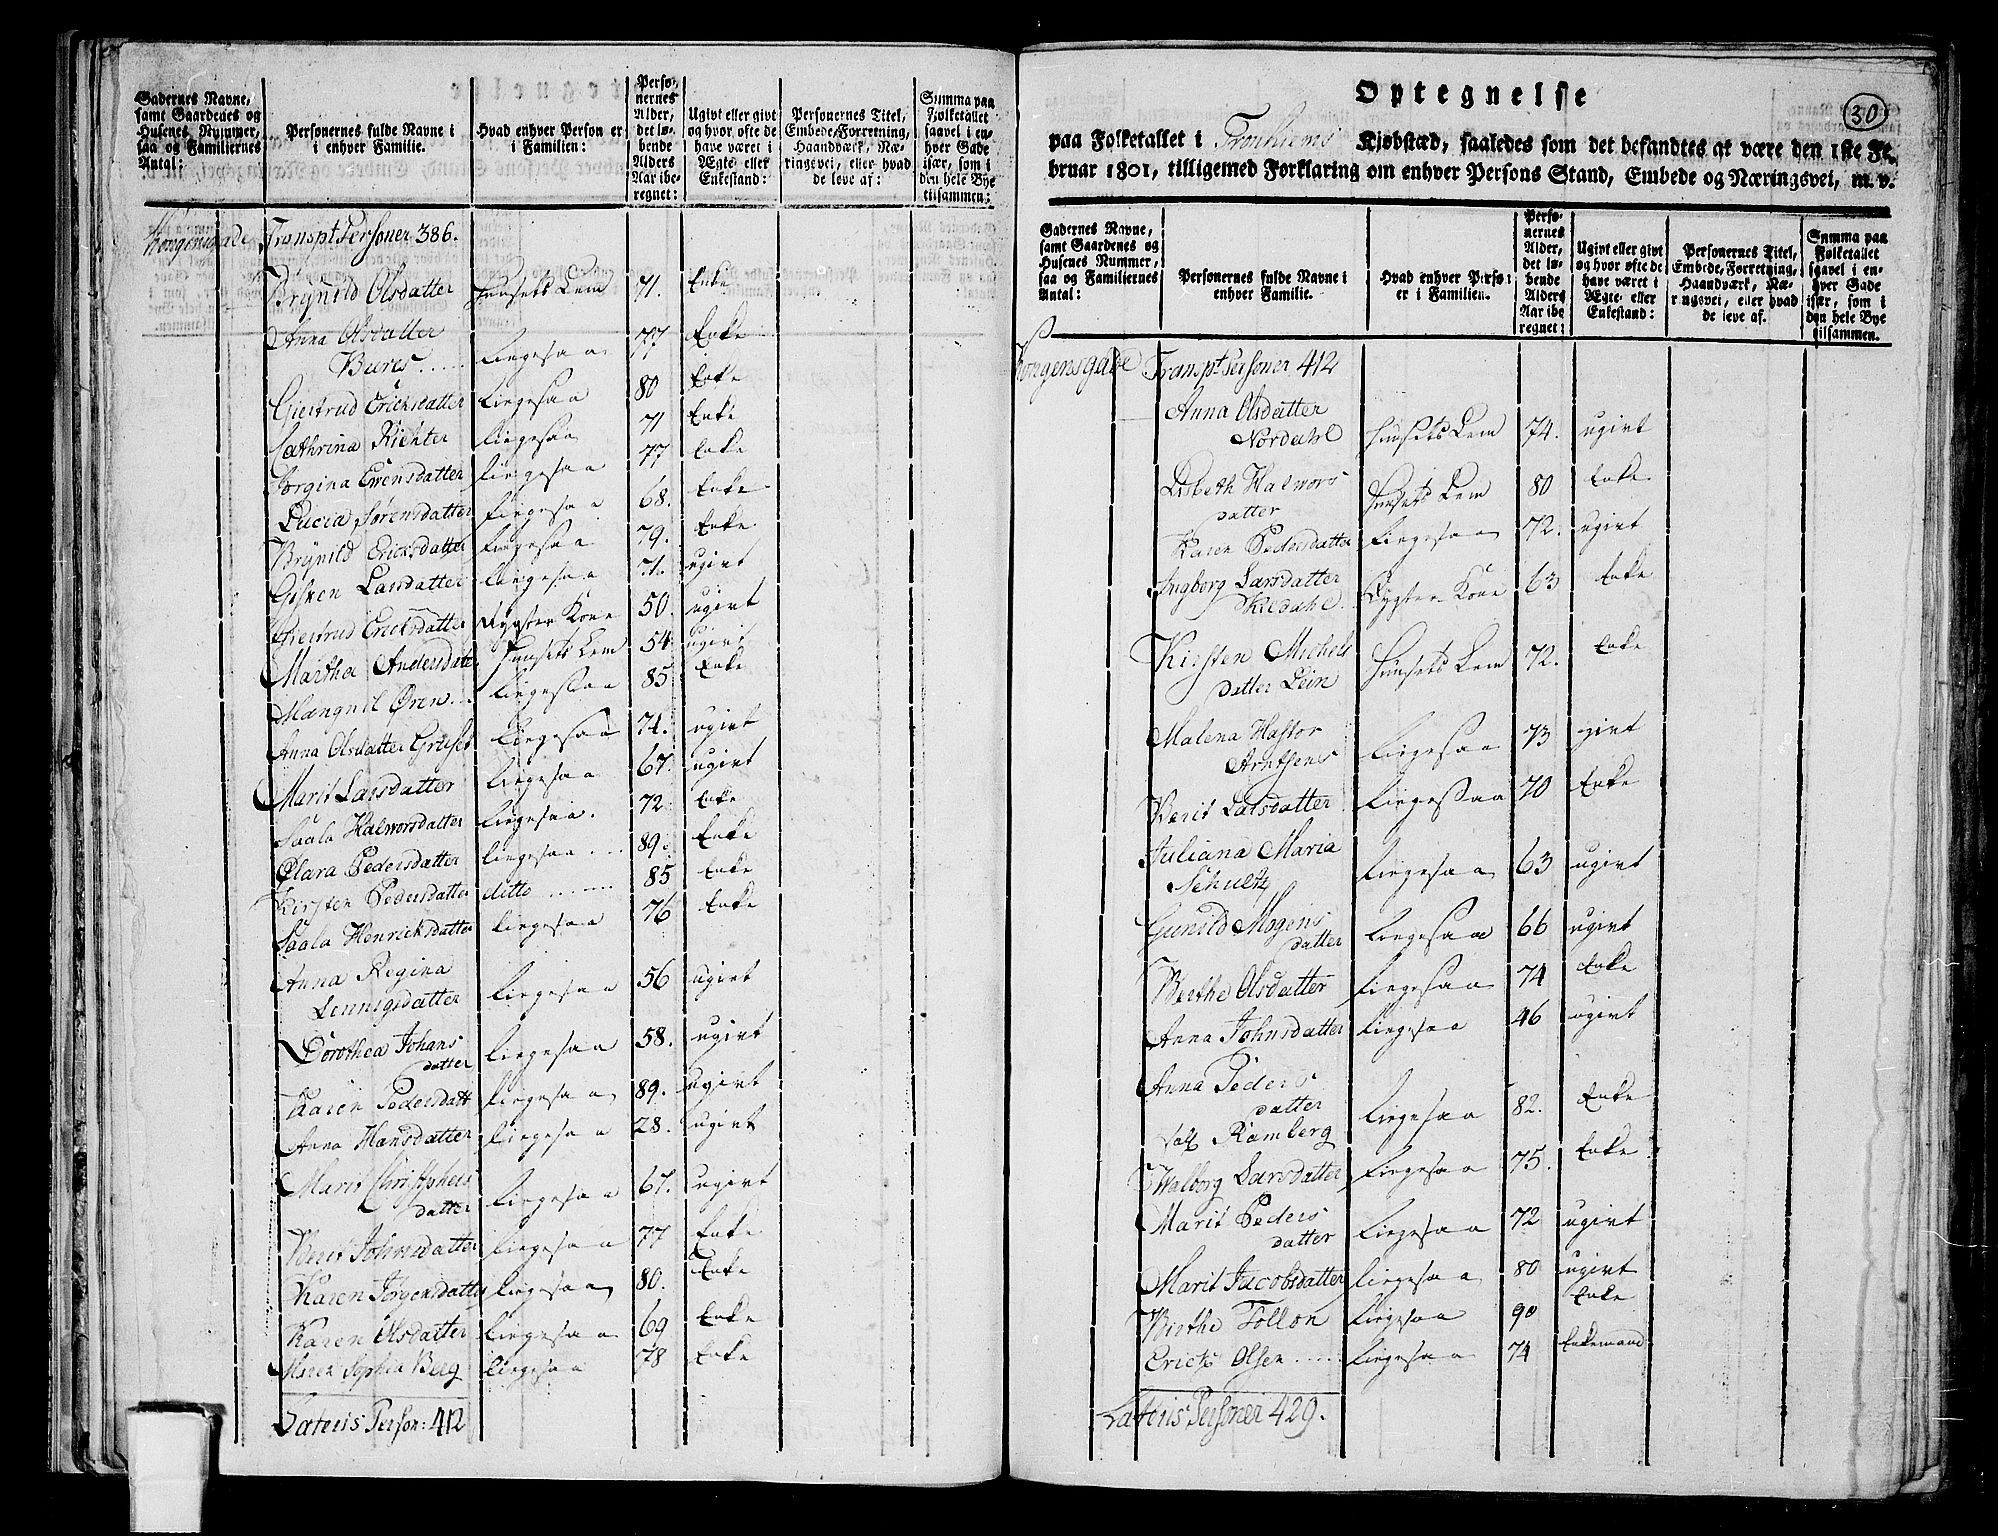 Gadernes Navne,
samt Gaardenes og
Husenes Nummer,
saa og Familiernes
Antal:
Personernes fulde Navne i
i enhver Familie.
Hvad enhver Person er
i Familien:
Perso-
nernes
Alder,
det lø-
bende
Alders
Aar ibe-
regnet:
Ugivt eller givt
og hvor ofte de
have været i
Ægte- eller
Enkestand:
Personernes Titel,
Embede, Forretning,
Haandværk, Næ-
ringsvei, eller hvad
de leve af:
Summa paa
Folketallet
saavel i en-
hver Gade
især, som i
den hele Bye
tilsammen:
Kongensgade Transpt Personer 386.
Brynild Olsdatter Huusets Lem 71. Enke
Anna Olsdatter
Bures..... Ligesaa 77 Enke
Giertrud Ericksdatter Ligesaa 80 Enke
Cathrina Richter Ligesaa 71 Enke
Jorgina Ewensdatter Ligesaa 77 Enke
Lucia Sørensdatter Ligesaa 68. Enke
Brynild Ericksdatter Ligesaa 79. Enke
Gisken Larsdatter Ligesaa 71. ugivt
Giertrud Ericksdatter Røgter Kone 50. ugivt
Martha Andersdatt Huusets Lem 54 ugivt
Mængnil Ören... Ligesaa 85 Enke
Anna Olsdatter Ligesaa 74. ugivt
Marit Larsdatter Ligesaa 67. ugivt
Saala Halworsdatter Ligesaa. 72 Enke
Clara Pedersdatter Ligesaa.... 89. Enke
Kirsten Pedersdatter ditto ...... 85 Enke
Saala Henricksdatter Ligesaa 76 Enke
Anna Regina
Lennsgsdatter Ligesaa 56 ugivt
Dorothea Johans
datter Ligesaa 58. ugivt
Karen Pedersdatt Ligesaa 89. ugivt
Anna Hansdatter Ligesaa 28. ugivt
Marit Christophers
datter Ligesaa 67. ugivt
Berit Johnsdatter Ligesaa 77 Enke
Karen Jörgensdatter Ligesaa 80. Enke
Karen Olsdatter Ligesaa 69 Enke
Maren Sophia Berg Ligesaa 78 Enke
Lateris Person: 412
30
Optegnelse
paa Folketallet i Tronhiems Kjøbstæd, saaledes som det befandtes at være den 1ste Fe-
bruar 1801, tilligemed Forklaring om enhver Persons Stand, Embede og Næringsvei, m. v.
Gadernes Navne,
samt Gaardenes og
Husenes Nummer,
saa og Familiernes
Antal:
Personernes fulde Navne i
enhver Familie.
Hvad enhver Person
er i Familien.
Perso-
nernes
Alder,
det lø-
bende
Alders
Aar ibe-
regnet:
Ugivt eller givt
og hvor ofte de
have været i
Ægte- eller
Enkestand:
Personernes Titel,
Embede, Forretning,
Haandværk, Næ-
ringsvei, eller hvad
de leve af.
Summa paa
Folketallet
saavel i en-
hver Gade
især, som i
den hele Bye
tilsammen.
Kongensgade Transpt Personer 412
Anna Olsdatter
Nordahl Huusets Lem 74. ugivt
Lisbeth Halwors
datter Huusets Lem 80 Enke
Karen Pedersdatter Ligesaa 72. ugivt
Ingborg Larsdatter
Røgter Kone 63 Enke
Kirsten Michels
datter Lein Huusets Lem 72. Enke
Malena Hastor
Arntsens Ligesaa 73 givt
Berit Larsdatter Ligesaa 70 Enke
Juliana Maria
Schultz Ligesaa 63 ugivt
Gunild Mogens
datter Ligesaa 66 ugivt
Berthe Olsdatter Ligesaa 74 Enke
Anna Johnsdatter Ligesaa 46 ugivt
Anna Peders
datter
Ramberg Ligesaa 82. Enke
Walborg Larsdatter Ligesaa 75. Enke
Marit Peders
datter Ligesaa 72 ugivt
Marit Jacobsdatter Ligesaa 80 ugivt
Berthe Follon Ligesaa 90 Enke
Ericks Olsen..... Ligesaa 74 Enkemand
Lateris Personer 429.